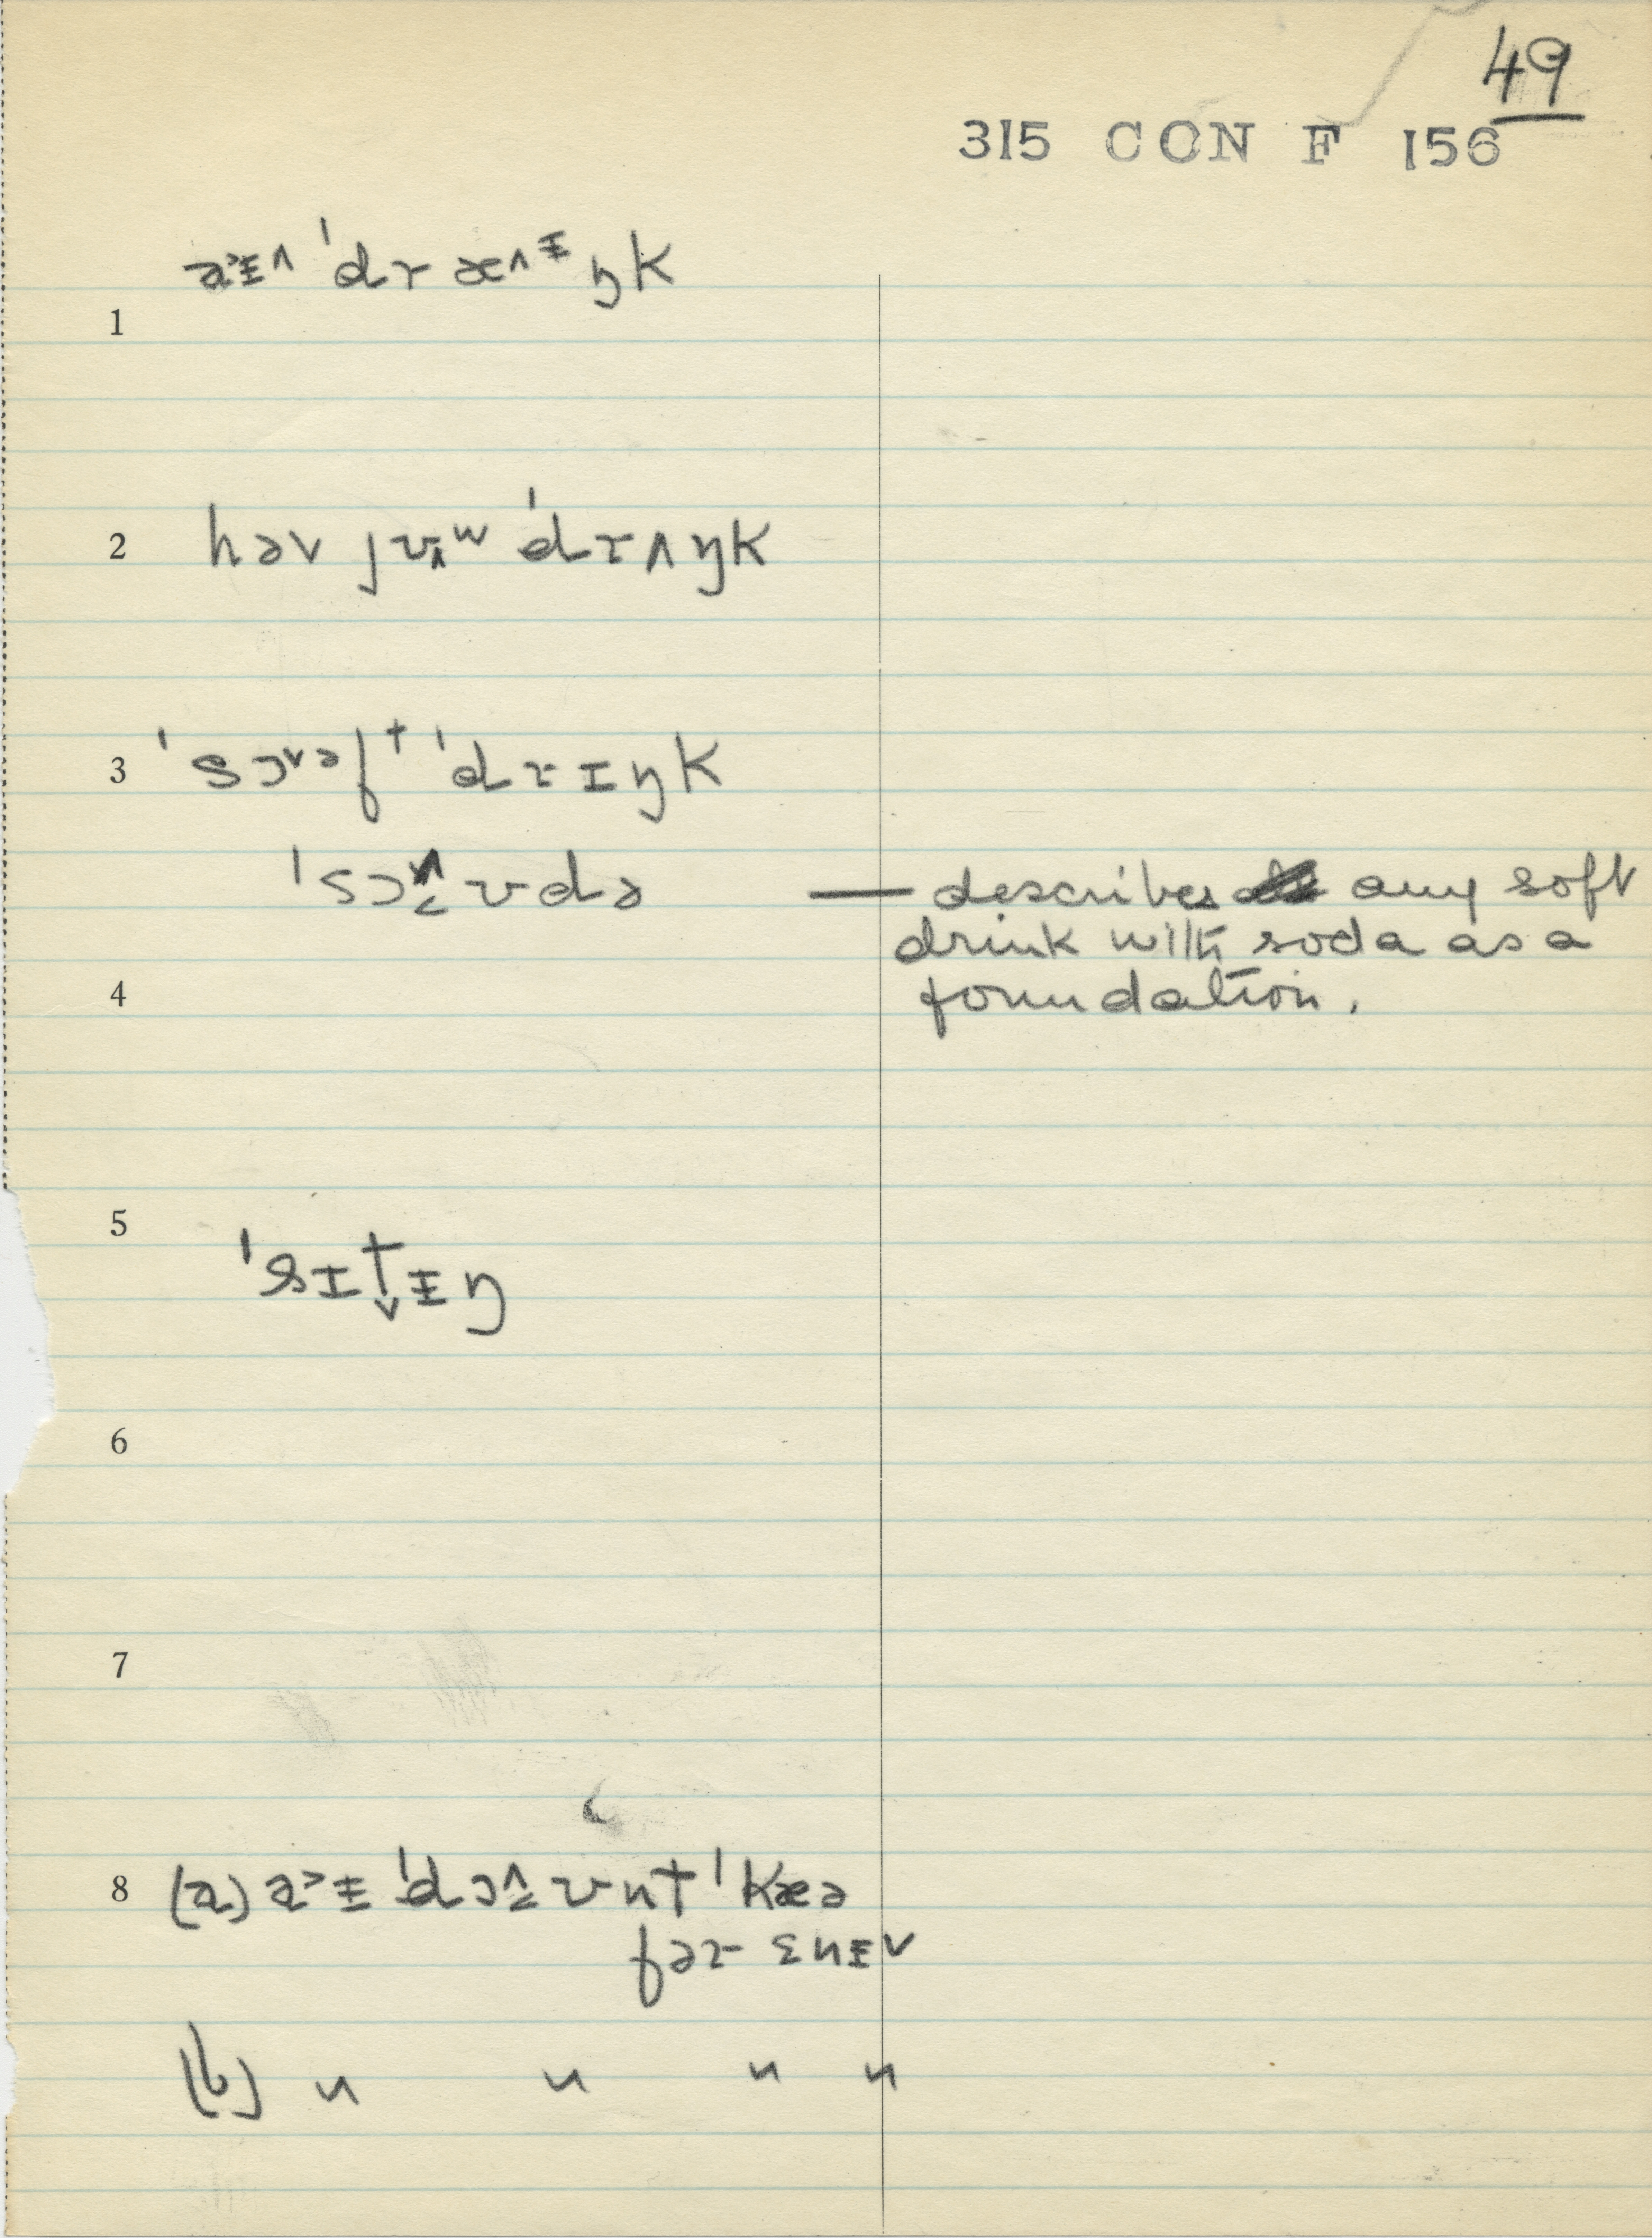 49
315 CON F 156
a˃ᵻ˄ ˈdr æ˄ᵻ ŋk
1
2 həv jʊ˄ʷ ˈdrʌŋk
3 ˈsɔ˅ᵊfᵗ ˈdrɪŋk
ˈsɔ˄˂ʊdə — describes any soft
drink with soda as a
4 foundation.
5
ˈsɪt˅ᵻŋ
6
7
8 (a) a˃ᵻ ˈdɔ˄˂ʊnt ˈkæə
fər ɛnᵻ˅
(b) " " " "